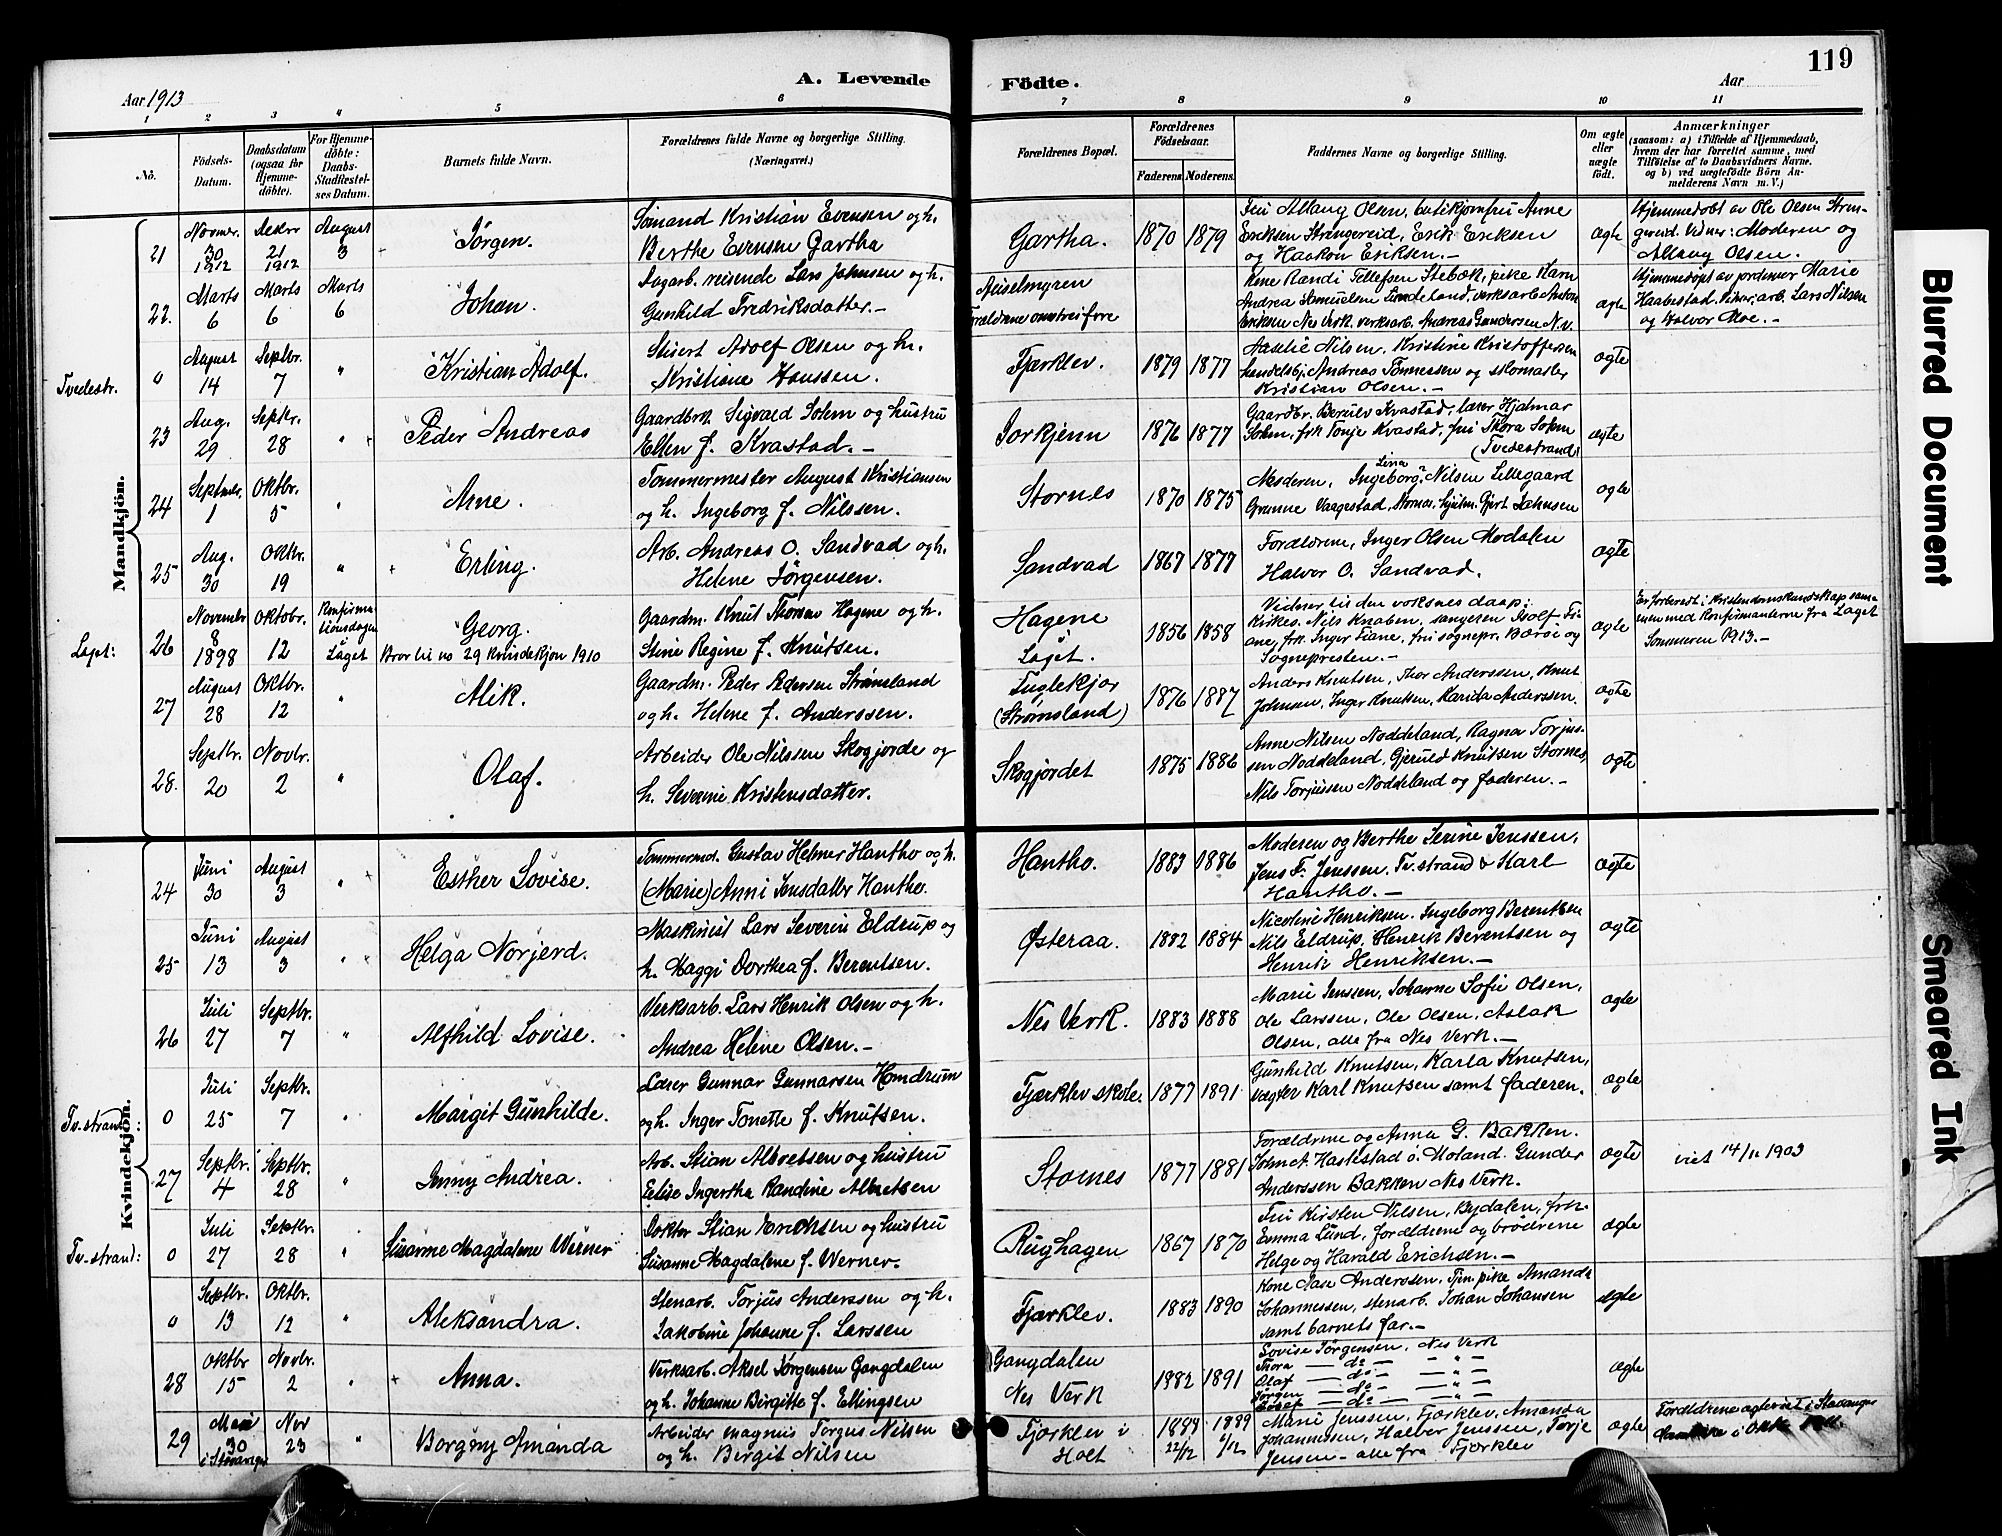 119
Aar 1913
A. Levende
Födte.
Aar
1 2 3 4 5 6 7 8 9 10 11
No.
Födsels-
Datum.
Daabsdatum
(ogsaa for
Hjemme-
döbte).
For Hjemme-
döbte:
Daabs-
Stadfæstel-
ses Datum.
Barnets fulde Navn.
Forældrenes fulde Navne og borgerlige Stilling.
(Næringsvei.)
Forældrenes Bopæl.
Forældrenes
Födselsaar.
Faderens Moderens.
Faddernes Navne og borgerlige Stilling.
Om ægte
eller
uægte
født.
Anmærkninger
(saasom: a) i Tilfælde af Hjemmedaab,
hvem der har forrettet samme, med
Tilföielse af to Daabsvidners Navne.
og b) ved uægtefödte Börn An-
melderens Navn m. V.)
Mandkjön.
21
Novmr.
30
1912
Decbr
21
1912
August
3
Jørgen.
Sømand Kristian Evensen og h.
Berthe Evensen Gartha
Gartha.
1870 1879
Fru Allaug Olsen, butikjomfru Anne
Eriksen Strengereid, Erik Eriksen
og Haakon Eriksen.—
ægte
Hjemmedøbt av Ole Olsen Stren-
gereid. Vidner: Moderen og
Allaug Olsen.
22.
Marts
6
Marts
6
Marts
6
Johan.
Dagarb. reisende Lars Johnsen og h.
Gunhild Fredriksdatter.—
Aaselmyren
Forældrene omstreifere
Kone Randi Tellefsen Stebæk, pike Karn
Andrea Samuelsen Lindeland, verksarb. Anton
Eriksen Nes Verk, verksarb. Andreas Gundersen N.v.
ægte
Hjemmedøpt av jordmor Marie
Haabestad. Vidner: arb. Lars Nilsen
og Halvor Moe.—
Tvedestr.
0
August
14
Septbr.
7
"
Kristian Adolf.
Stuert Adolf Olsen og h.
Kristiane Hanssen.
Fjærklev.
1879 1877
Aaselie Nilsen, Kristine Kristoffersen
handelsbj. Andreas Tønnessen og skomaker
Kristian Olsen.—
ægte
23
Aug.
29
Septbr.
28
"
Peder Andreas
Gaardbrk. Sigvald Solem og hustru
Ellen f. Kvastad.—
Torkjenn
1876 1877
Gaardbr. Berulv Kvastad, lærer Hjalmar
Solem, frk Tonje Kvastad, fru Thora Solem
(Tvedestrand)
ægte
24
Septmbr.
1
Oktbr.
5
"
Arne.
Tømmermester August Kristiansen
og h. Ingeborg f. Nilssen.
Stornes
1870 1875
Moderen, Ingeborg Lina Nilsen Lillegaard
Grunne Vaagestad, Stornes, hjulm. Gjert Johnsen
ægte
25
Aug.
30
Oktbr.
19
"
Erling.
Arb. Andreas O. Sandvad og h.
Helene Jørgensen.
Sandvad
1867 1877
Forældrene, Inger Olsen Modalen
Halvor O. Sandvad.
ægte
Laget:
26
November
8
1898
Oktobr.
12
Konfirma-
tionsdagen
Laget
Georg.
Bror til no 29 kvindekjøn 1910
Gaardm. Knut Thorsen Hagene og h.
Stine Regine f. Knutsen.
Hagene
Laget.
1856 1858
Vidner til den voksnes daap:
Kirkes. Nils Knaben, sangeren Isolf Fi-
ane, frk. Inger Fiane, fru sognepr. Bærøe og
Sognepresten.—
ægte
Er forberedt i Kristendomskundskap sam-
men med Konfirmanterne fra Laget
Sommeren 1913.—
27
August
28
Oktbr.
12
"
Alik.
Gaardm. Peder Pedersen Strømsland
og h. Helene f. Anderssen.
Fuglekjær
(Strømsland)
1876 1887
Anders Knutsen, Thor Anderssen, Knut
Johnsen, Inger Knutsen, Karida Anderssen.
ægte
28.
Septbr.
20
Novbr.
2
"
Olaf.
Arbeider Ole Nilssen Skogjorde og
h. Severine Kristensdatter.
Skogjordet
1875 1886
Anne Nilsen Noddeland, Ragna Torjus-
sen Noddeland, Gjeruld Knutsen Stornes,
Nils Torjussen Noddeland og faderen.—
ægte
Kvindekjön.
24
Juni
30
August
3
"
Esther Lovise.
Tømmermd. Gustav Helmer Hantho og h.
(Marie) Anni Jensdatter Hantho.
Hantho.
1883 1886
Moderen og Berthe Serine Jenssen,
Jens F. Jenssen, Tv.strand & Karl
Hantho.—
ægte
25
Juni
13
August
3
"
Helga Norjerd.
Maskinist Lars Severin Eldrup og
h. Maggi Dorthea f. Berentsen.
Østeraa.
1882 1884
Nicoline Henriksen, Ingeborg Berentsen
Nils Eldrup, Henrik Berentsen og
Henrik Henriksen.—
ægte
26
Juli
27
Septbr.
7
"
Alfhild Lovise.
Verksarb. Lars Henrik Olsen og h.
Andrea Helene Olsen.—
Nes Verk.
1883 1888
Marie Jenssen, Johanne Sofie Olsen,
Ole Larssen, Ole Olsen, Aslak
Olsen, alle fra Nes Verk.—
ægte
Tv.strand:
0
Juli
25
Septbr.
7
"
Margit Gunhilde.
Lærer Gunnar Gunnarsen Homdrum
og h. Inger Tonette f. Knutsen.
Fjærklev skole.
1877 1891
Gunhild Knutsen, Karla Knutsen,
vægter Karl Knutsen samt faderen.
ægte
27
Septbr.
4
Septbr.
28
"
Jenny Andrea.
Arb. Stian Albretsen og hustru
Eelise Ingertha Randine Albretsen
Stornes
1877 1881
Forældrene og Anna G. Bakken.
John A. Hastestad ø. Moland. Gunder
Anderssen Bakken Nes Verk.
ægte
viet 14/11 1903
Tv.strand:
0
Juli
27
Septbr.
28
"
Susanne Magdalene Werner
Doktor Stian Erichsen og hustru
Susanne Magdalene f. Werner.
Rughagen
1867 1870
Fru Kirsten Nilsen, Bydalen, frk.
Emma Lund, forældrene og brødrene
Helge og Harald Erichsen.—
ægte
0
Septbr.
13
Oktbr.
12
"
Aleksandra.
Stenarb. Torjus Anderssen og h.
Jakobine Johanne f. Larssen
Fjærklev.
1883 1890
Kone Aase Anderssen, Tjen.pike Amanda
Johannessen, stenarb. Johan Johansen
samt barnets far.—
ægte
28
Oktbr
15
Novbr.
2
"
Anna.
Verksarb. Aksel Jørgensen Gangdalen
og h. Johanne Birgitte f. Ellingsen
Gangdalen
Nes Verk
1882 1891
Lovise Jørgensen, Nes Verk
Thora — do — — " —
Olaf — do — — " —
Jørgen — do — — " —
— do — — " —
ægte
29
Mai
30
i Stavanger
Nov
23
"
Borgny Amanda
Arbeider Magnus Torgus Nilsen
og h. Birgit Nilsen
Fjærklev i
Holt
1889
22/12
1889
Marie Jenssen, Fjærklev, Amanda
Johannessen, Halvor Jenssen, Terje
Jensen — alle fra Fjærklev
ægte
Forældrene agteviet i Stavanger
Blurred Document
Smeared Ink